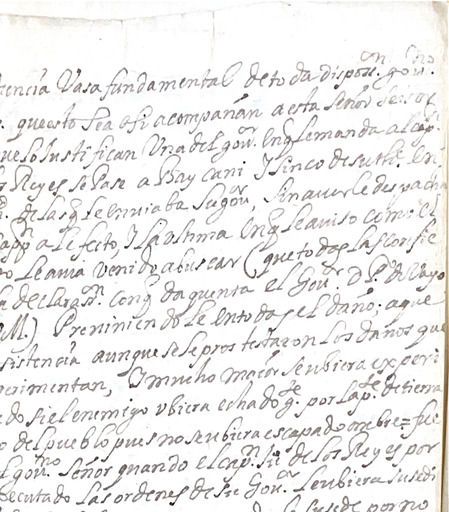 tencia Vasa fundamental de toda disposs.n gov.no
que esto sea asi acompañan a esta señor seis or
que lo Justifican Una del gov.r en q le manda al cap.n
Reyes se Pase a Bay cani Y sinco de su th.e En
de las q le enviaba su gov.r sin averle despacha
app.n a le fecto, Y la Vltima En q le aviso como el
le avia venido a buscar (que todas las confie
la declaras.n con q da quenta el Gov.r D P.o de Vayo
M.) Preniniendole En todas el daño; a que
sistencia aunque se le protestaron los daños que
perimentan, Y mucho maior se ubiera experi
do si el enemigo ubiera echado g.te por la p.te de tierra
o del pueblo pues no se ubiera escapado ombre = fue
gov.no Señor quando el cap.n de los Reyes por
ecutado las ordenes de su Gov.r le ubiera susedi
susede por no